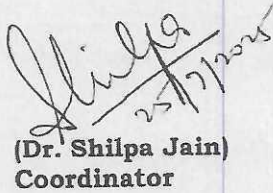 Shilpa
25/7/2025
(Dr. Shilpa Jain)
Coordinator